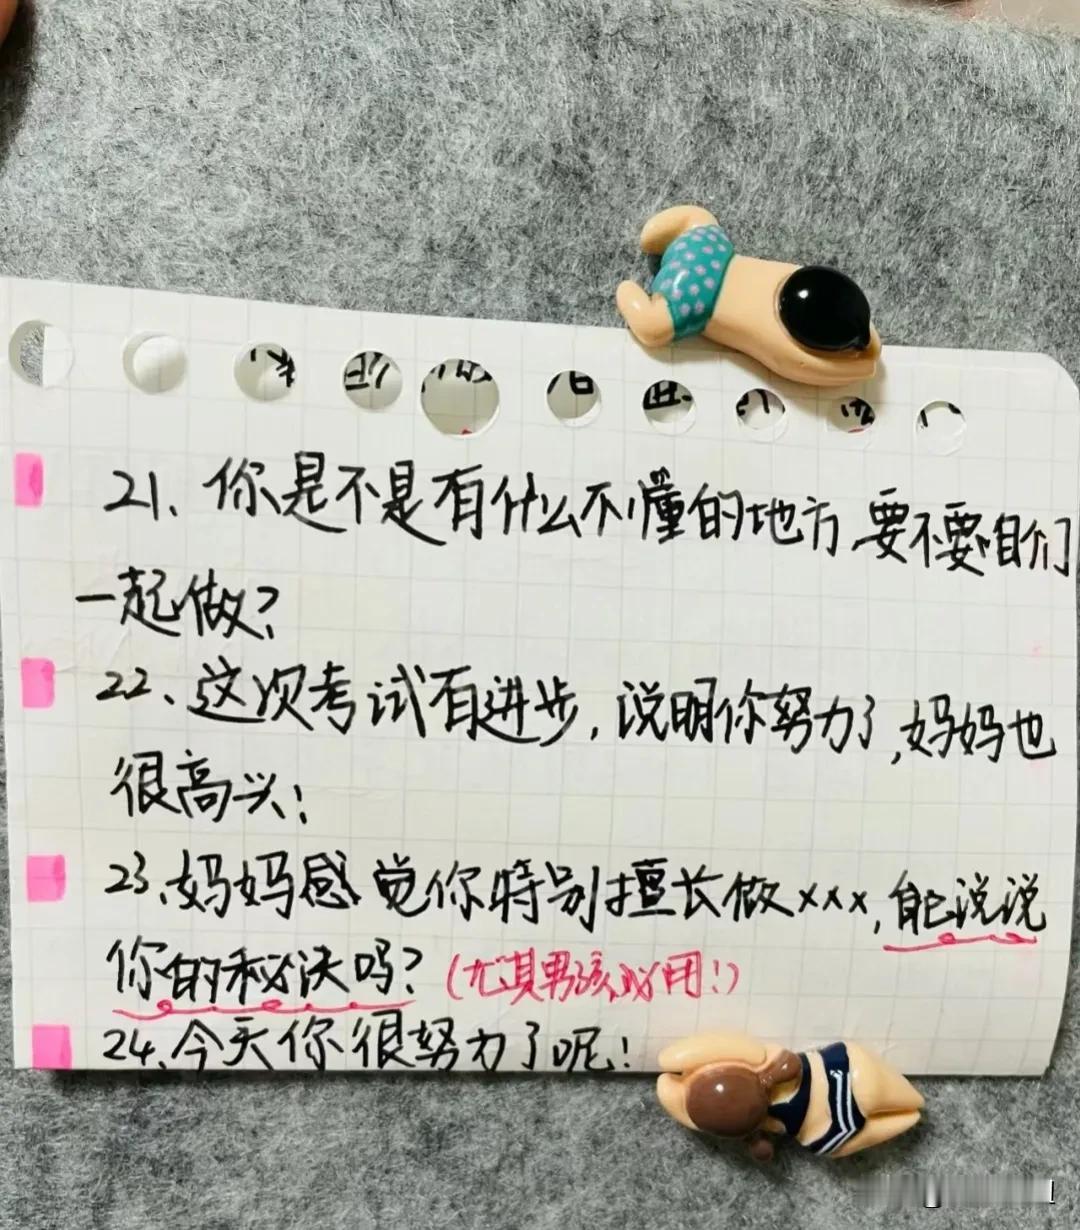 21、你是不是有什么不懂的地方,要不要咱们
一起做?
22、这次考试有进步,说明你努力了,妈妈也
很高兴!
23、妈妈感觉你特别擅长做×××,能说说
你的秘决吗?(尤其男孩必用!)
24、今天你很努力了呢!